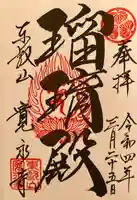 奉拝
令和四年
三月二十五日
瑠璃殿
東叡山
寛永寺